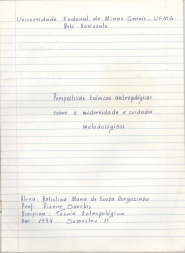 Universidade Federal de Minas Gerais - UFMG
Belo Horizonte
Perspectivas teóricas antropológicas
sobre a modernidade e cuidados
Metodológicos
Aluna: Maria de Souza
Prof. Pierre Sanchis
Disciplina: Teoria Antropológica
Ano: 1994 Semestre: 1º